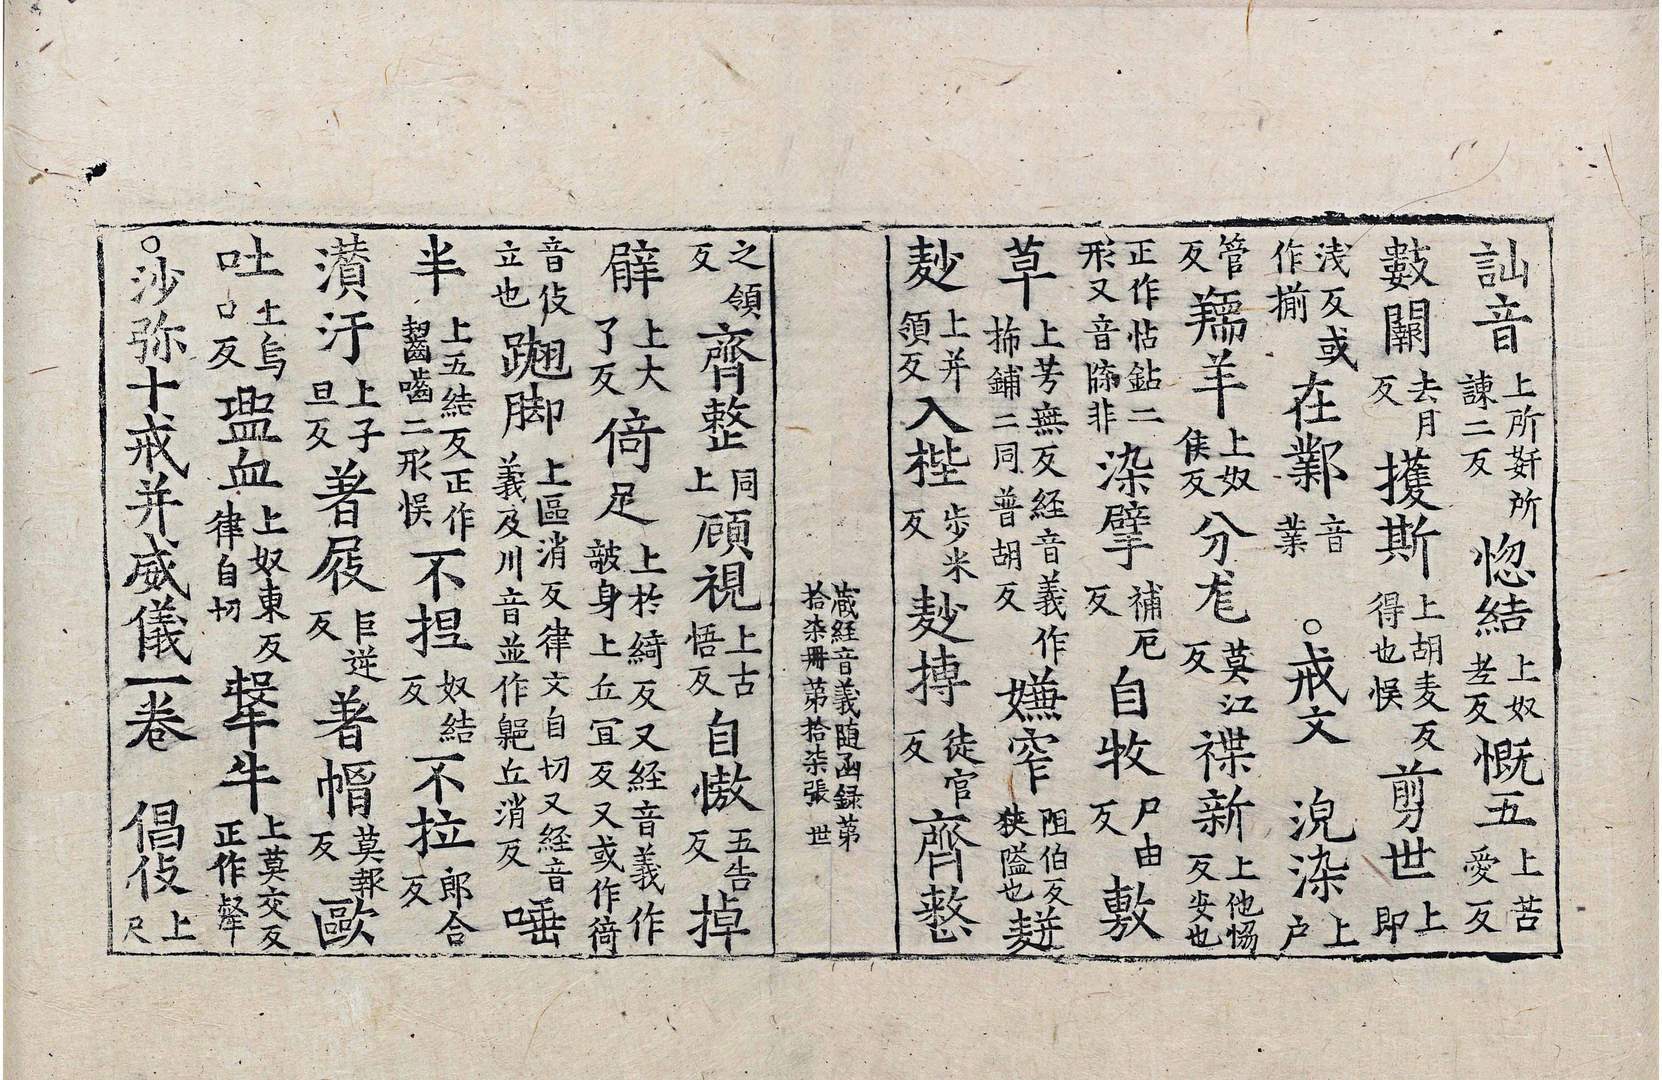 訕音上所姧所諫二反惚結上奴老反慨五上苦愛反
數闕去月反擭斯上胡麦反得也悮剪世上即
淺反或作揃在鄴音業○戒文　涀染上户
管反羺羊上奴侯反分尨莫江反褋新上他恊反安也
正作怗鉆二形又音𦠆非染擘補厄反自牧尸由反敷
草上芳無反経音義作抪鋪二同普胡反嫌窄阻伯反狭隘也麨
麨上并領反入梐步米反麨摶徒官反齊整
蔵経音義随函録第拾柒冊第拾柒張　世
之領反齊整同上顧視上古悟反自慠五告反掉
臂上大了反倚足上於綺反又経音義作㱦身上丘冝反又或作徛
音伎立也蹺脚上區消反律文自切又経音義及川音並作䠻丘消反
半上五結反正作齧囓二形悮不捏奴結反不拉郎合反唾
灒汙上子旦反著屐巨逆反著帽莫報反歐
吐上烏口反盥血上奴東反律自切犛牛上莫交反正作犛
○沙弥十戒并威儀一卷　倡伎上尺